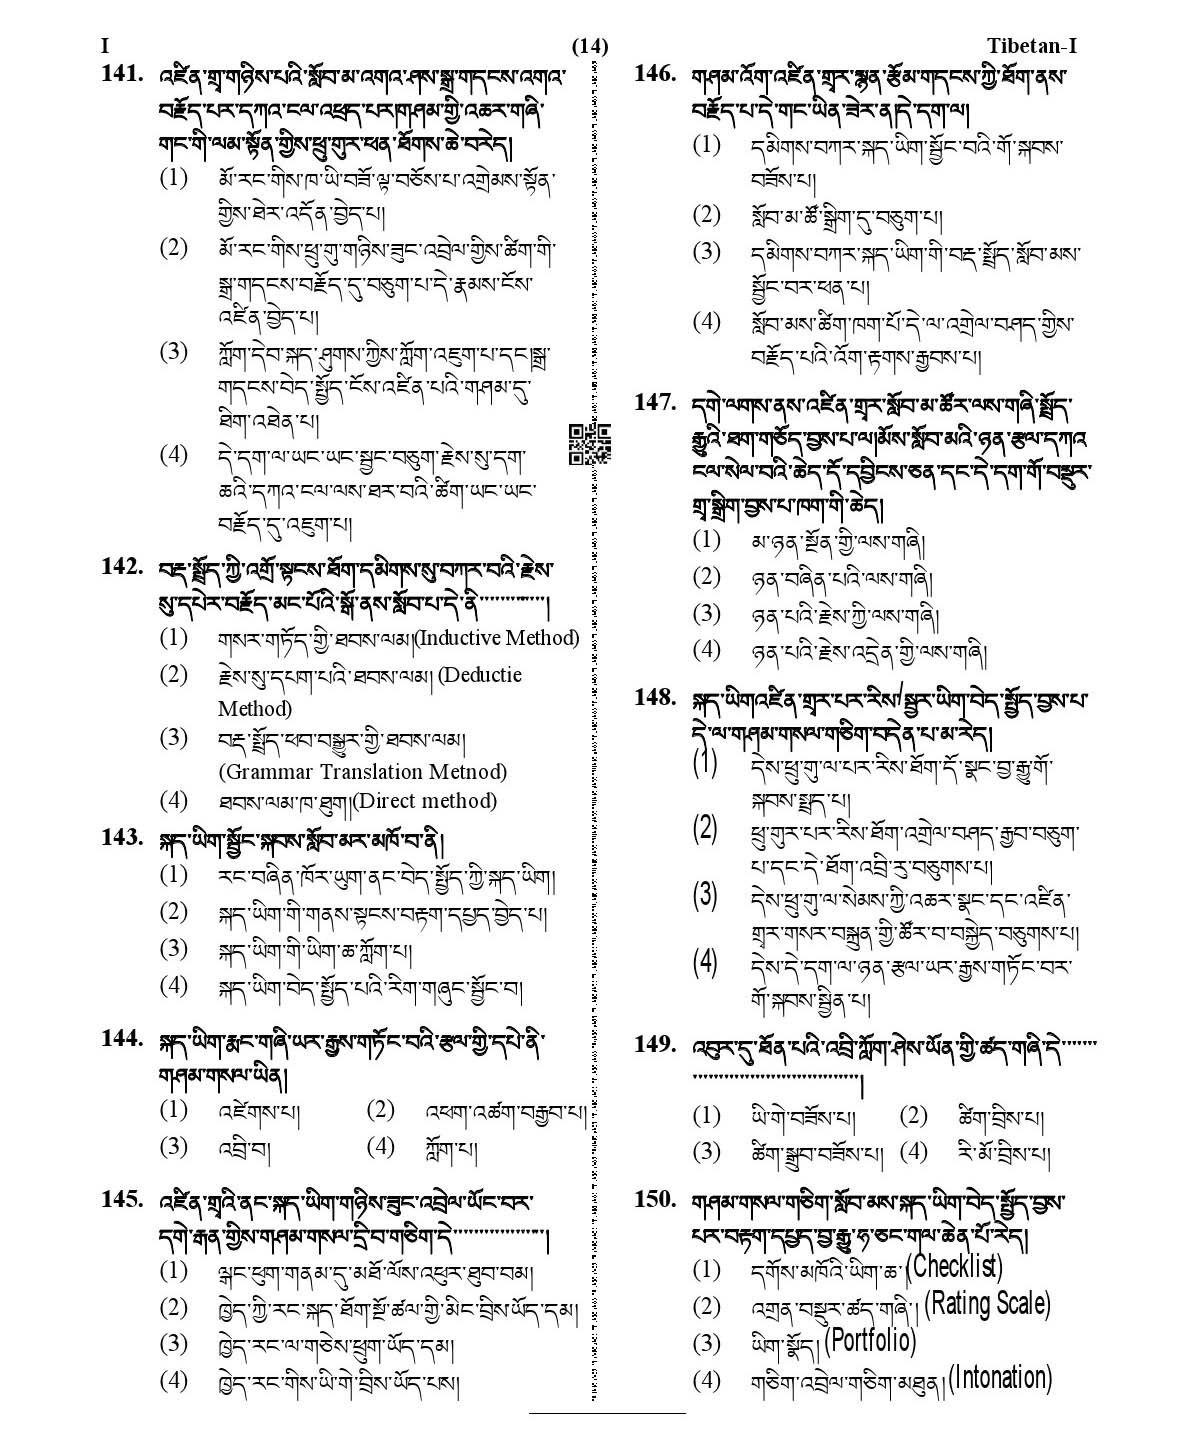 I
(14)
Tibetan-I
141. འཛིན་གྲྭ་གཉིས་པའི་སློབ་མ་འགའ་ཤས་སྒྲ་གདངས་འགའ་
བརྗོད་པར་དཀའ་ངལ་འཕྲད་པར།གཤམ་གྱི་འཆར་གཞི་
གང་གི་ལམ་སྟོན་གྱིས་ཕྲུ་གུར་ཕན་ཐོགས་ཆེ་བརེད།
(1) མོ་རང་གིས་ཁ་ཡི་བཟོ་ལྟ་བཅོས་པ་འགྲེམས་སྟོན་
གྱིས་ཐེར་འདོན་བྱེད་པ།
(2) མོ་རང་གིས་ཕྲུ་གུ་གཉིས་ཟུང་འབྲེལ་གྱིས་ཚིག་གི་
སྒྲ་གདངས་བརྗོད་དུ་བཅུག་པ་དེ་རྣམས་ངོས་
འཛིན་བྱེད་པ།
(3) ཀློག་དེབ་སྐད་ཤུགས་ཀྱིས་ཀློག་འཇུག་པ་དང།སྒྲ་
གདངས་བེད་སྤྱོད་ངོས་འཛིན་པའི་གཤམ་དུ་
ཐིག་འཐེན་པ།
(4) དེ་དག་ལ་ཡང་ཡང་སྦྱང་བཅུག་རྗེས་སུ་དག་
ཆའི་དཀའ་ངལ་ལས་ཐར་བའི་ཚིག་ཡང་ཡང་
བརྗོད་དུ་འཇུག་པ།
142. བརྡ་སྤྲོད་ཀྱི་འགྲོ་སྟངས་ཐོག་དམིགས་སུ་བཀར་བའི་རྗེས་
སུ་དཔེར་བརྗོད་མང་པོའི་སྒོ་ནས་སློབ་པ་དེ་ནི་.............།
(1) གསར་གཏོད་གྱི་ཐབས་ལམ།(Inductive Method)
(2) རྗེས་སུ་དཔག་པའི་ཐབས་ལམ། (Deductie
Method)
(3) བརྡ་སྤྲོད་ཕབ་བསྒྱུར་གྱི་ཐབས་ལམ།
(Grammar Translation Metnod)
(4) ཐབས་ལམ་ཁ་ཐུག།(Direct method)
143. སྐད་ཡིག་སྦྱོང་སྐབས་སློབ་མར་མཁོ་བ་ནི།
(1) རང་བཞིན་ཁོར་ཡུག་ནང་བེད་སྤྱོད་ཀྱི་སྐད་ཡིག།
(2) སྐད་ཡིག་གི་གནས་སྟངས་བརྟག་དཔྱད་བྱེད་པ།
(3) སྐད་ཡིག་གི་ཡིག་ཆ་ཀློག་པ།
(4) སྐད་ཡིག་བེད་སྤྱོད་པའི་རིག་གཞུང་སྦྱོང་བ།
144. སྐད་ཡིག་རྨང་གཞི་ཡར་རྒྱས་གཏོང་བའི་རྩལ་གྱི་དཔེ་ནི་
གཤམ་གསལ་ཡིན།
(1) འཛེགས་པ། (2) འཕག་འཚག་བརྒྱབ་པ།
(3) འབྲི་བ། (4) ཀློག་པ།
145. འཛིན་གྲྭའི་ནང་སྐད་ཡིག་གཉིས་ཟུང་འབྲེལ་ཡོང་བར་
དགེ་རྒན་གྱིས་གཤམ་གསལ་དྲི་བ་གཅིག་དེ་.................།
(1) ལྒང་ཕུག་གནམ་དུ་མཐོ་ལོས་འཕུར་ཐུབ་བམ།
(2) ཁྱེད་ཀྱི་རང་སྐད་ཐོག་སྔོ་ཚལ་གྱི་མིང་བྲིས་ཡོད་དམ།
(3) ཁྱེད་རང་ལ་གཅེས་ཕྲུག་ཡོད་དམ།
(4) ཁྱེད་རང་གིས་ཡི་གེ་བྲིས་ཡོད་པས།
146. གཤམ་འོག་འཛིན་གྲྭར་སྙན་རྩོམ་གདངས་ཀྱི་ཐོག་ནས་
བརྗོད་པ་དེ་གང་ཡིན་ཟེར་ན།དེ་དག་ལ།
(1) དམིགས་བཀར་སྐད་ཡིག་སྦྱོང་བའི་གོ་སྐབས་
བཟོས་པ།
(2) སློབ་མ་ཚོ་སྒྲིག་དུ་བཅུག་པ།
(3) དམིགས་བཀར་སྐད་ཡིག་གི་བརྡ་སྤྲོད་སློབ་མས་
སྦྱོང་བར་ཕན་པ།
(4) སློབ་མས་ཚིག་ཁག་པོ་དེ་ལ་འགྲེལ་བཤད་གྱིས་
བརྗོད་པའི་འོག་རྟགས་རྒྱབས་པ།
147. དགེ་ལགས་ནས་འཛིན་གྲྭར་སློབ་མ་ཚོར་ལས་གཞི་སྤྲོད་
རྒྱུའི་ཐག་གཅོད་བྱས་པ་ལ།མོས་སློབ་མའི་ཉན་རྩལ་དཀའ
ངལ་སེལ་བའི་ཆེད་དོ་དབྱིངས་ཅན་དང་དེ་དག་གོ་བསྡུར་
གྲྭ་སྒྲིག་བྱས་པ་ཁག་གི་ཆེད།
(1) མ་ཉན་སྔོན་གྱི་ལས་གཞི།
(2) ཉན་བཞིན་པའི་ལས་གཞི།
(3) ཉན་པའི་རྗེས་ཀྱི་ལས་གཞི།
(4) ཉན་པའི་རྗེས་འདྲེན་གྱི་ལས་གཞི།
148. སྐད་ཡིགའཛིན་གྲྭར་པར་རིས/སྦྱར་ཡིག་བེད་སྤྱོད་བྱས་པ་
དེ་ལ་གཤམ་གསལ་གཅིག་བདེན་པ་མ་རེད།
(1) དེས་ཕྲུ་གུ་ལ་པར་རིས་ཐོག་དོ་སྣང་བྱ་རྒྱུ་གོ་
སྐབས་སྤྲད་པ།
(2) ཕྲུ་གུར་པར་རིས་ཐོག་འགྲེལ་བཤད་རྒྱབ་བཅུག་
པ་དང་དེ་ཐོག་འབྲི་རུ་བཅུགས་པ།
(3) དེས་ཕྲུ་གུ་ལ་སེམས་ཀྱི་འཆར་སྣང་དང་འཛིན་
གྲྭར་གསར་བསྐྲུན་གྱི་ཚོར་བ་བསྐྱེད་བཅུགས་པ།
(4) དེས་དེ་དག་ལ་ཉན་རྩལ་ཡར་རྒྱས་གཏོང་བར་
གོ་སྐབས་སྦྱིན་པ།
149. འབུར་དུ་ཐོན་པའི་འབྲི་ཀློག་ཤེས་ཡོན་གྱི་ཚད་གཞི་དེ་.......
................................།
(1) ཡི་གེ་བཟོས་པ། (2) ཚིག་བྲིས་པ།
(3) ཚིག་སྒྲུབ་བཟོས་པ། (4) རི་མོ་བྲིས་པ།
150. གཤམ་གསལ་གཅིག་སློབ་མས་སྐད་ཡིག་བེད་སྤྱོད་བྱས་
པར་བརྟག་དཔྱད་བྱ་རྒྱུ་ཧ་ཅང་གལ་ཆེན་པོ་རེད།
(1) དགོས་མཁོའི་ཡིག་ཆ་།(Checklist)
(2) འགྲན་བསྡུར་ཚད་གཞི་། (Rating Scale)
(3) ཡིག་སྣོད། (Portfolio)
(4) གཅིག་འབྲེལ་གཅིག་མཐུན། (Intonation)